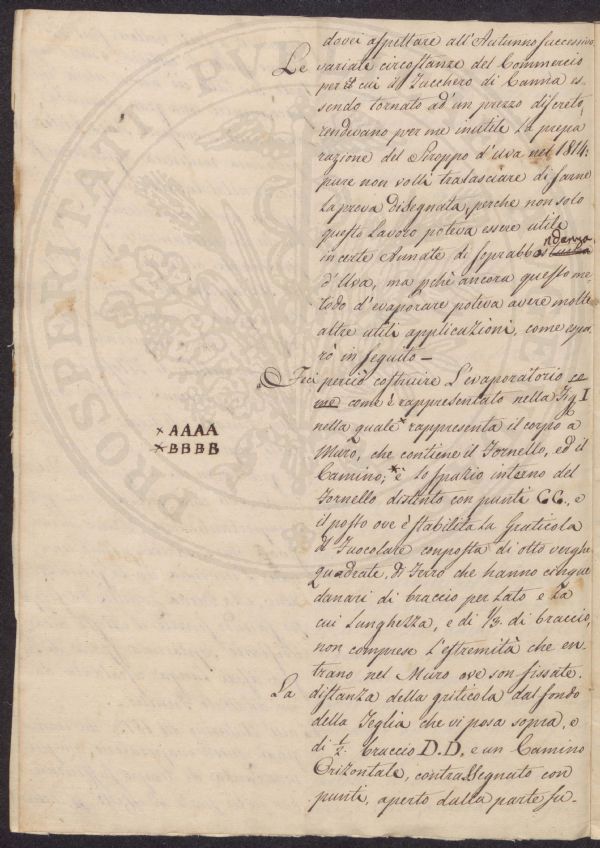 dovei aspettare all'Autunno successivo
Le variate circostanze del Commercio
per cui il Zucchero di Canna es
sendo tornato ad'un prezzo discreto,
rendevano per me inutile la prepa
razione del Siroppo d'Uva nel 1814:
pure non volli tralasciare di farne
la prova disegnata, perche non solo
questo Lavoro poteva essere utile
in certe Annate di soprabbondanza
d'Uva, ma pchè ancora questo me
todo d'evaporare poteva avere molte
altre utili applicazioni, come espor
rò in seguito —
Feci perciò costruire L'evaporatorio co
me come è rappresentato nella Fig I
nella quale × rappresenta il corpo a
Muro, che contiene il Fornello, ed il
Camino; × è lo spazio interno del
Fornello distinto con punti CC., e
il posto ove è stabilita La Graticola
di Fuocolare composta di otto verghe
quadrate, di Ferro che hanno cinque
danari di braccio per Lato e La
cui Lunghezza, e di 1/3. di braccio,
non comprese L'estremità che en
trano nel Muro ove son fissate.
La distanza della griticola dal fondo
della Teglia che vi posa sopra, e
di 1/2 braccio D.D. e un Camino
Orizontale, contrassegnato con
punti, aperto dalla parte su-
× AAAA
× BBBB
PROSPERITATI PUBL